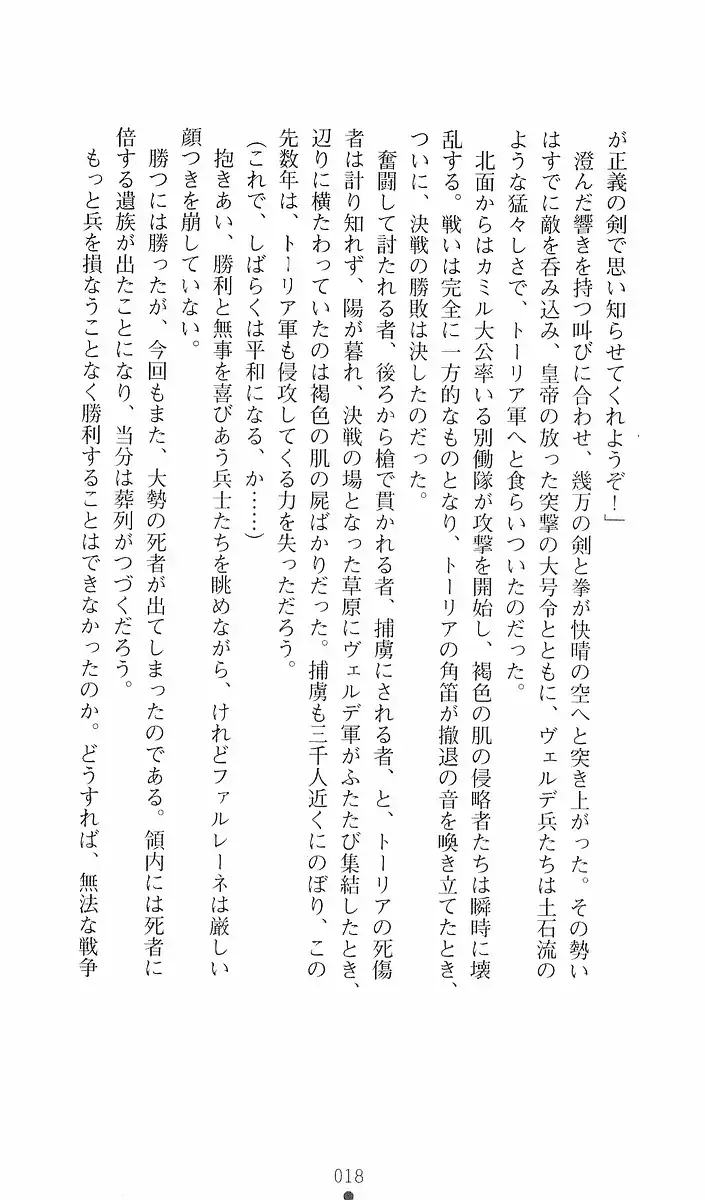 が正義の剣で思い知らせてくれようぞ！」
　澄んだ響きを持つ叫びに合わせ、幾万の剣と拳が快晴の空へと突き上がった。その勢い
はすでに敵を呑み込み、皇帝の放った突撃の大号令とともに、ヴェルデ兵たちは土石流の
ような猛々しさで、トーリア軍へと食らいついたのだった。
　北面からはカミル大公率いる別働隊が攻撃を開始し、褐色の肌の侵略者たちは瞬時に壊
乱する。戦いは完全に一方的なものとなり、トーリアの角笛が撤退の音を喚き立てたとき、
ついに、決戦の勝敗は決したのだった。
　奮闘して討たれる者、後ろから槍で貫かれる者、捕虜にされる者、と、トーリアの死傷
者は計り知れず、陽が暮れ、決戦の場となった草原にヴェルデ軍がふたたび集結したとき、
辺りに横たわっていたのは褐色の肌の屍ばかりだった。捕虜も三千人近くにのぼり、この
先数年は、トーリア軍も侵攻してくる力を失っただろう。
（これで、しばらくは平和になる、か……）
　抱きあい、勝利と無事を喜びあう兵士たちを眺めながら、けれどファルレーネは厳しい
顔つきを崩していない。
　勝つには勝ったが、今回もまた、大勢の死者が出てしまったのである。領内には死者に
倍する遺族が出たことになり、当分は葬列がつづくだろう。
　もっと兵を損なうことなく勝利することはできなかったのか。どうすれば、無法な戦争
018